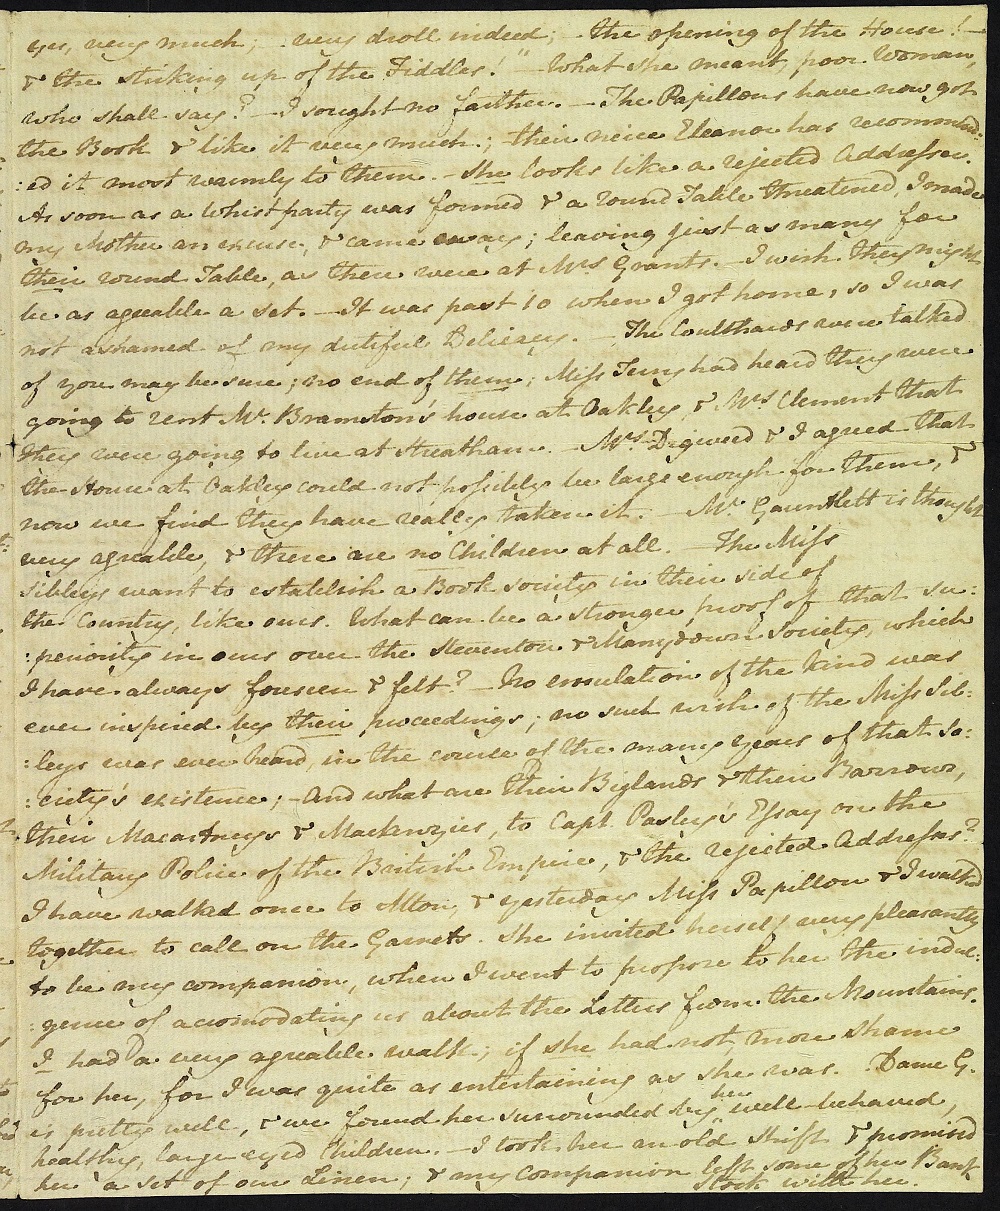 yes, very much; very droll indeed; – the opening of the House! –
& the striking up of the Fiddles!" – What she meant, poor Woman,
who shall say? – I sought no farther. – The Papillons have now got
the Book & like it very much; their neice Eleanor has recommend:
:ed it most warmly to them. – She looks like a rejected Addresser.
As soon as a Whist party was formed & a round Table threatened, I made
my Mother an excuse, & came away; leaving just as many for
their round Table, as there were at Mrs Grants. – I wish they might
be as agreable a set. – It was past 10 when I got home, so I was
not ashamed of my dutiful Delicacy. – The Coulthards were talked
of you may be sure; no end of them; Miss Terry had heard they were
going to rent Mr. Bramston's house at Oakley, & Mrs Clement that
they were going to live at Streatham. – Mrs Digweed & I agreed that
the House at Oakley could not possibly be large enough for them, &
now we find they have really taken it. – Mr. Gauntlett is thought
very agreable, & there are no Children at all. – The Miss
Sibleys want to establish a Book Society in their side of
the Country, like ours. What can be a stronger proof of that su:
:periority in ours over the Steventon & Manydown Society, which
I have always foreseen & felt? – No emulation of the kind was
ever inspired by their proceedings; no such wish of the Miss Sib:
:leys was ever heard, in the course of the many years of that So:
:ciety's existence; – And what are their Biglands & their Barrows,
their Macartneys & Mackenzies, to Capt. Pasley's Essay on the
Military Police of the British Empire, & the rejected Addresses?
I have walked once to Alton, & yesterday Miss Papillon & I walked
together to call on the Garnets. She invited herself very pleasantly
to be my companion, when I went to propose to her the indul:
:gence of accomodating us about the Letters from the Mountains.
I had a very agreable walk; if she had not, more shame
for her, for I was quite as entertaining as she was. Dame G.
is pretty well, & we found her surrounded by her well-behaved,
healthy, large-eyed Children. – I took her an old Shift & promised
her a set of our Linen; & my companion left some of her Bank
Stock with her.